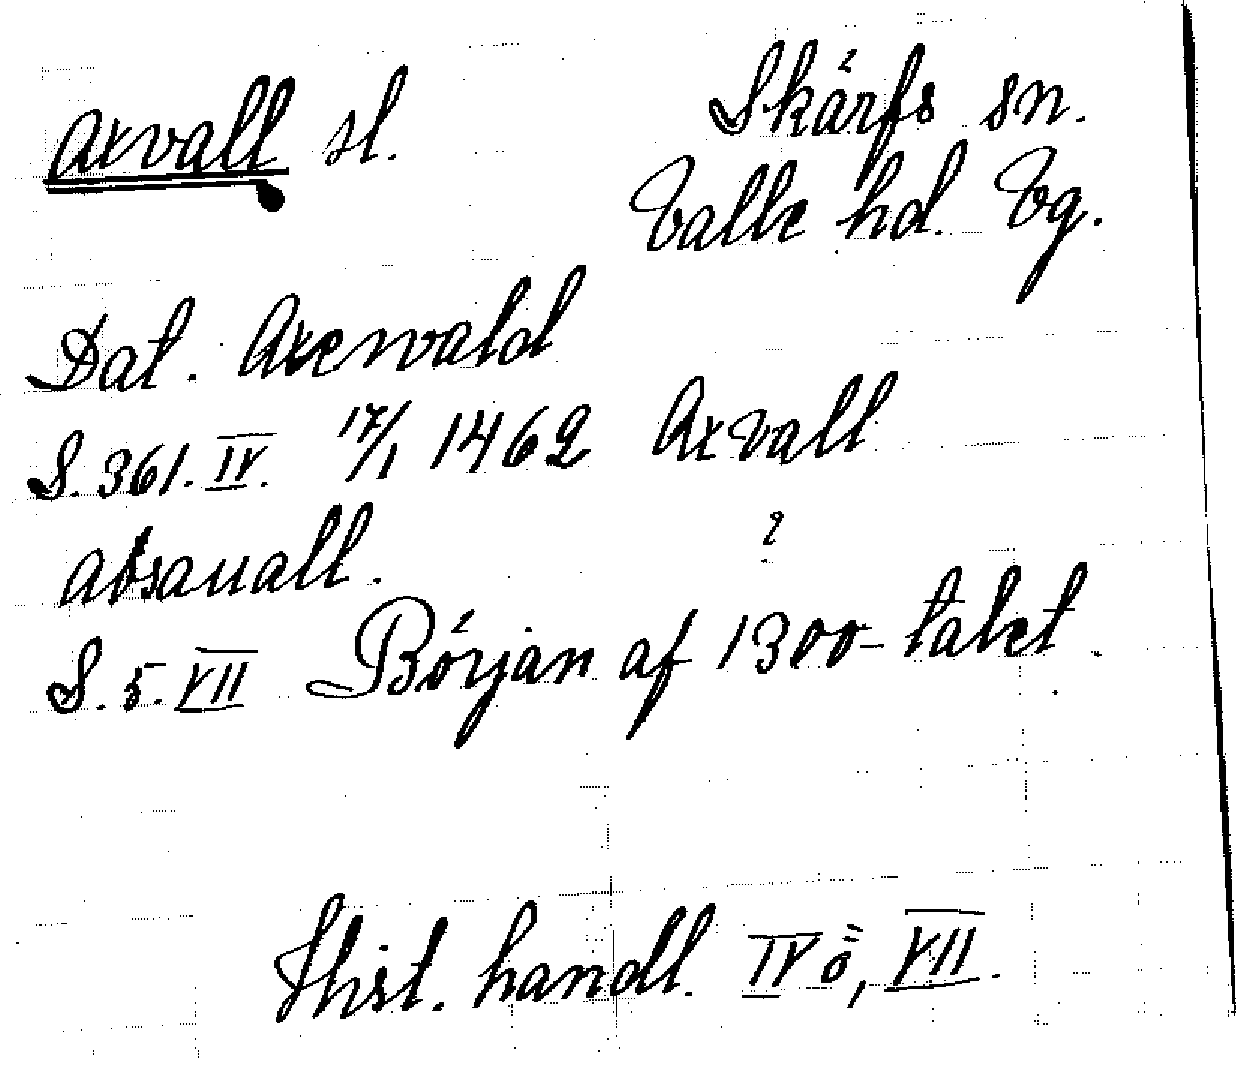 Axvall sl.
Skärfs sn.
Valle hd. Vg.
Dat. Axewald
S. 361. IV. 17/1 1462 Axvall
absauall. ?
S. 5. VII Början af 1300-talet.
Hist. handl. IV ö, VII.